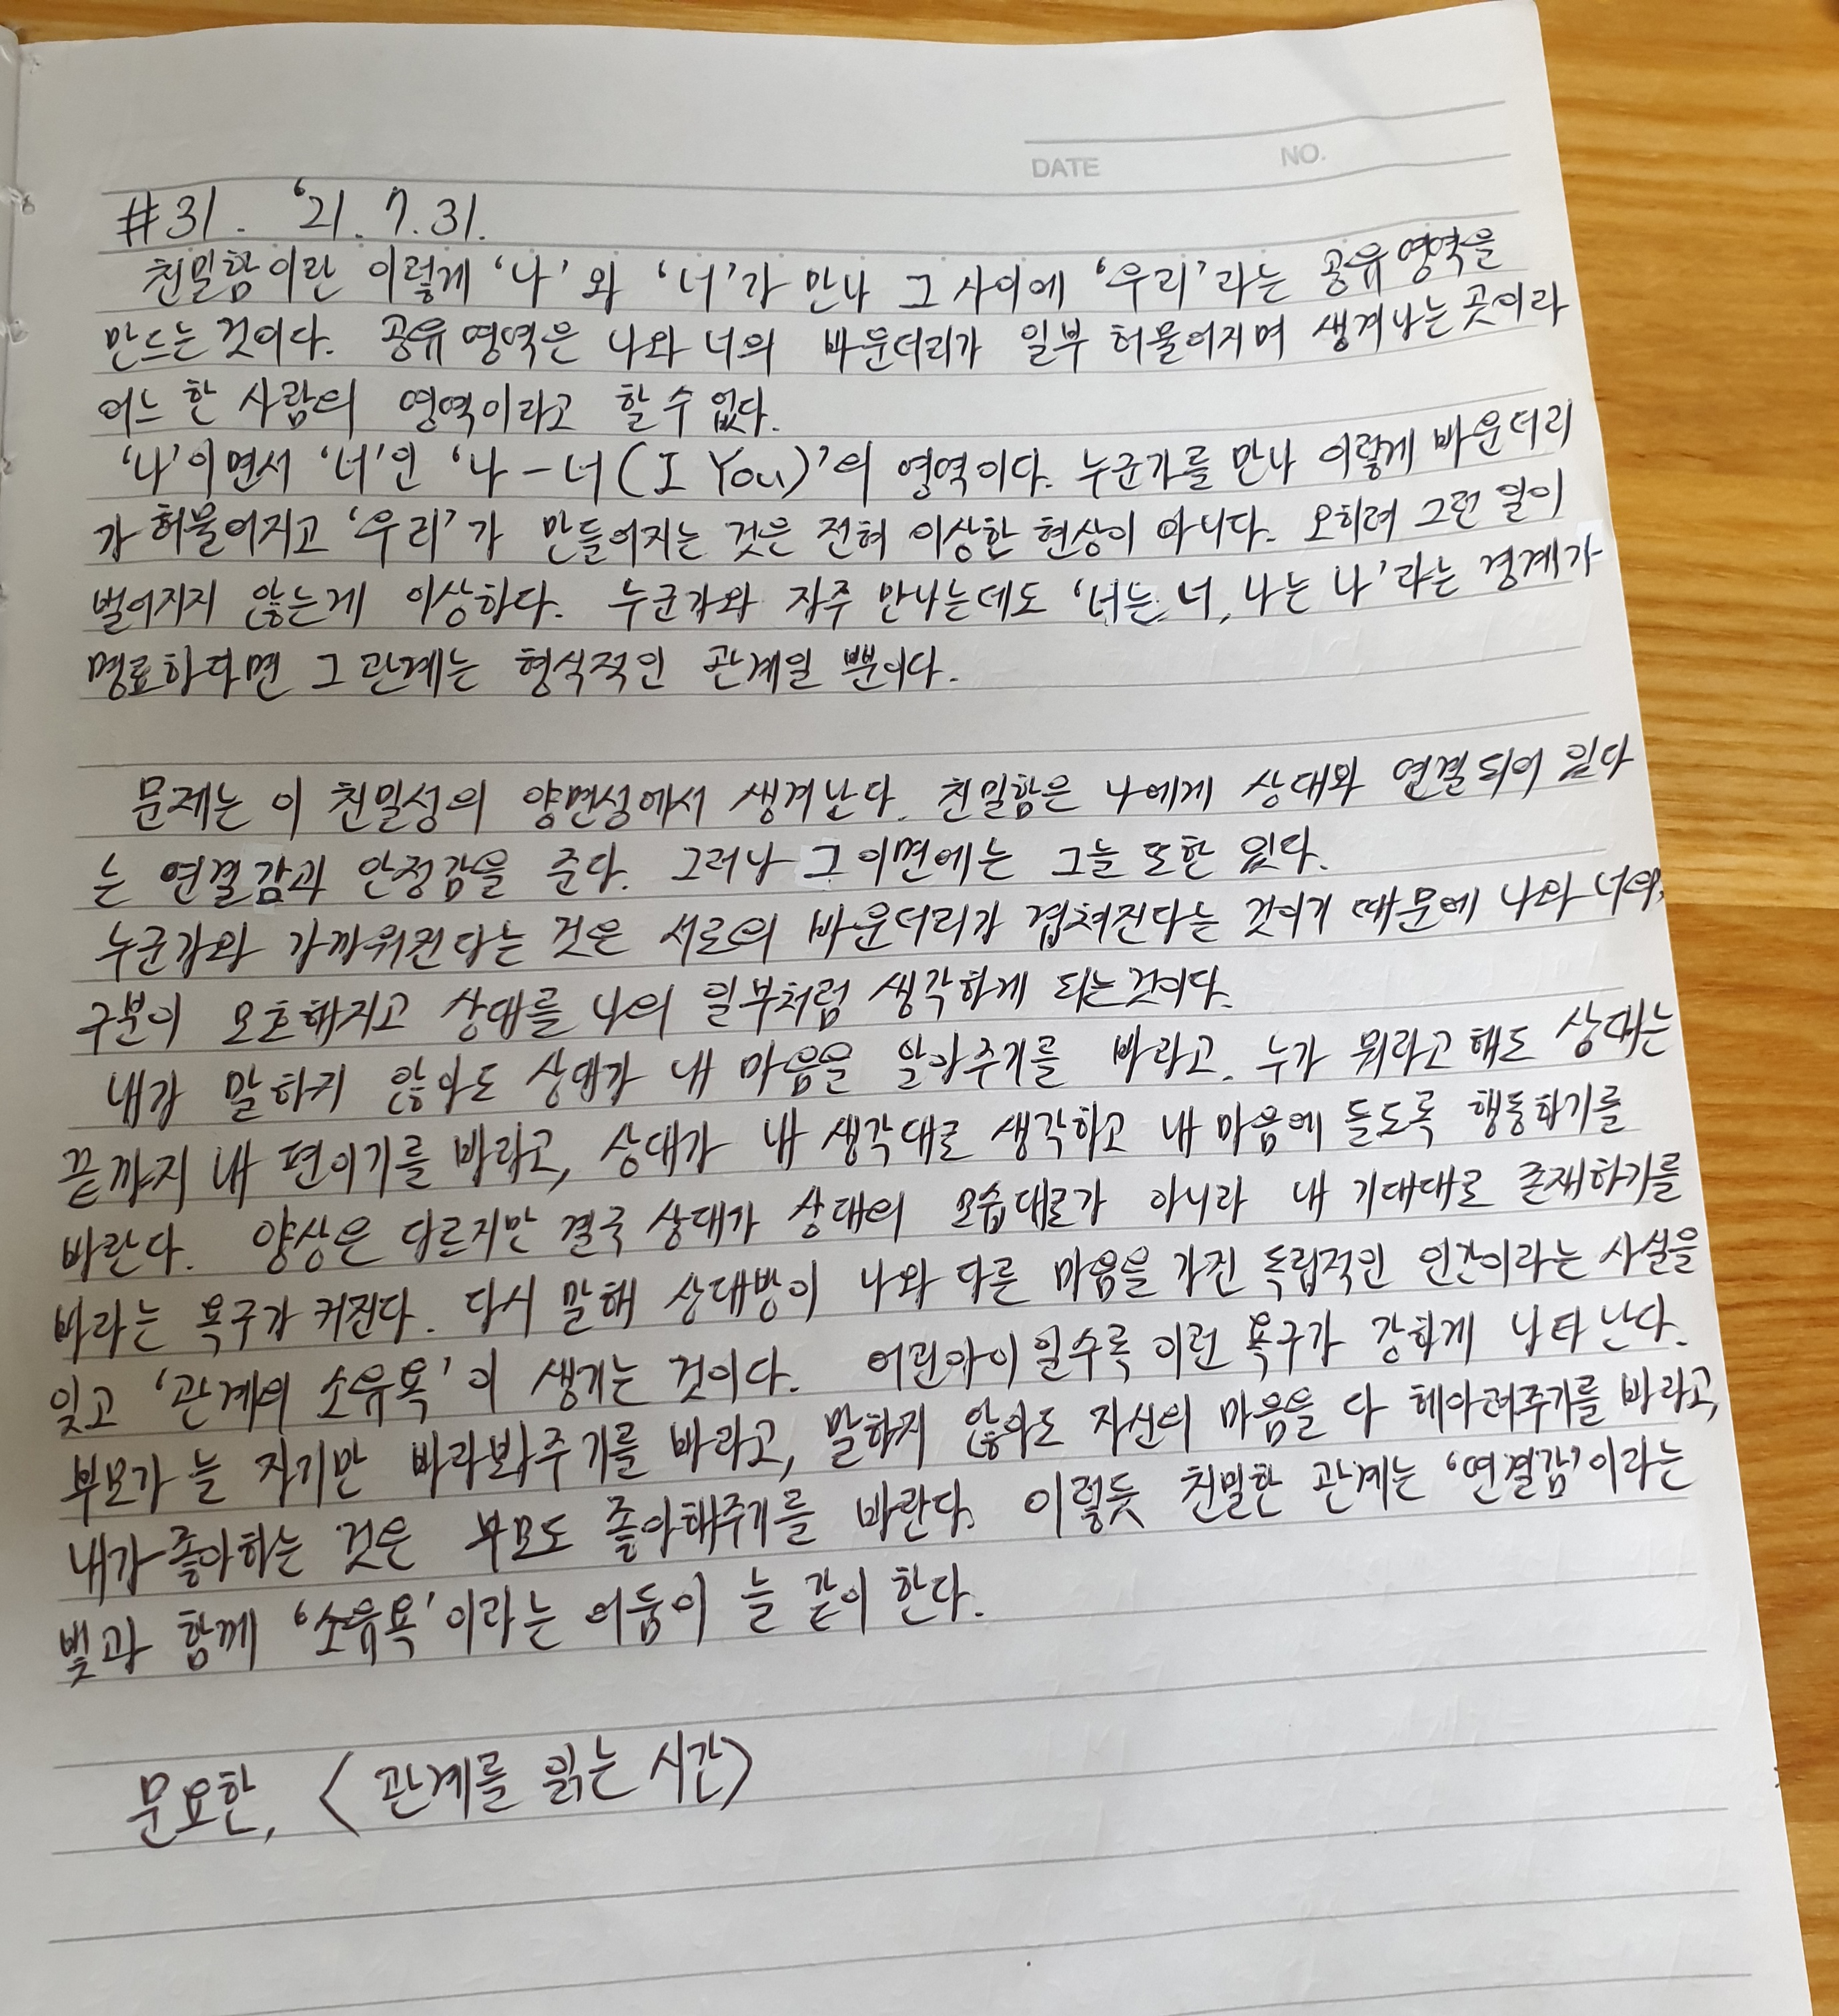 DATE NO.
#31. '21. 7. 31.
친밀함이란 이렇게 '나'와 '너'가 만나 그 사이에 '우리'라는 공유영역을
만드는 것이다. 공유영역은 나와 너의 바운더리가 일부 허물어지며 생겨나는 곳이라
어느 한 사람의 영역이라고 할 수 없다.
'나'이면서 '너'인 '나-너(I You)'의 영역이다. 누군가를 만나 이렇게 바운더리
가 허물어지고 '우리'가 만들어지는 것은 전혀 이상한 현상이 아니다. 오히려 그런 일이
벌어지지 않는게 이상하다. 누군가와 자주 만나는데도 '너는 너, 나는 나'라는 경계가
명료하다면 그 관계는 형식적인 관계일 뿐이다.
문제는 이 친밀성의 양면성에서 생겨난다. 친밀함은 나에게 상대와 연결되어 있다
는 연결감과 안정감을 준다. 그러나 그 이면에는 그늘 또한 있다.
누군가와 가까워진다는 것은 서로의 바운더리가 겹쳐진다는 것이기 때문에 나와 너의
구분이 모호해지고 상대를 나의 일부처럼 생각하게 되는것이다.
내가 말하지 않아도 상대가 내 마음을 알아주기를 바라고. 누가 뭐라고 해도 상대는
끝까지 내 편이기를 바라고, 상대가 내 생각대로 생각하고 내 마음에 들도록 행동하기를
바란다. 양상은 다르지만 결국 상대가 상대의 모습대로가 아니라 내 기대대로 존재하기를
바라는 욕구가 커진다. 다시 말해 상대방이 나와 다른 마음을 가진 독립적인 인간이라는 사실을
잊고 '관계의 소유욕'이 생기는 것이다. 어린아이일수록 이런 욕구가 강하게 나타난다.
부모가 늘 자기만 바라봐주기를 바라고, 말하지 않아도 자신의 마음을 다 헤아려주기를 바라고,
내가 좋아하는 것은 부모도 좋아해주기를 바란다. 이렇듯 친밀한 관계는 '연결감'이라는
빛과 함께 '소유욕'이라는 어둠이 늘 같이 한다.
문요한, <관계를 읽는 시간>